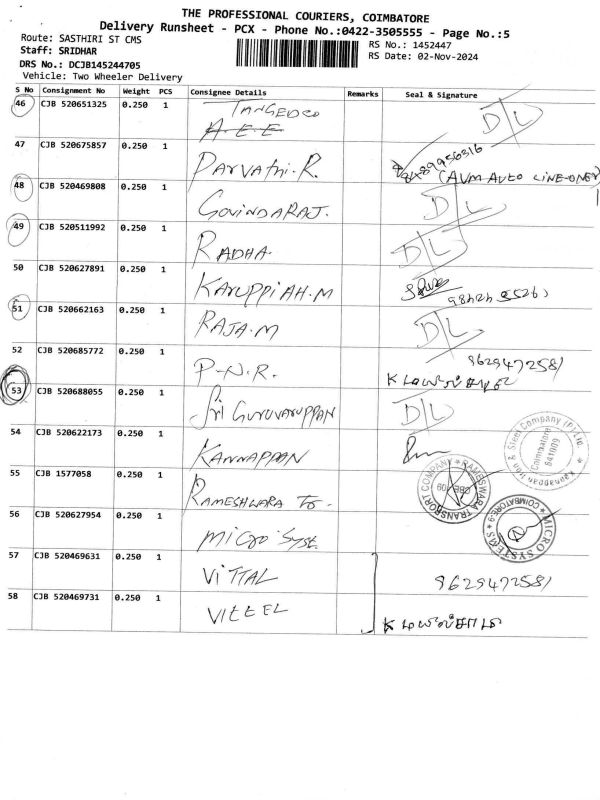 THE PROFESSIONAL COURIERS, COIMBATORE
Delivery Runsheet - PCX - Phone No.:0422-3505555 - Page No.:5
Route: SASTHIRI ST CMS
RS No.: 1452447
Staff: SRIDHAR
RS Date: 02-Nov-2024
DRS No.: DCJB145244705
Vehicle: Two Wheeler Delivery
S No Consignment No Weight PCS Consignee Details Remarks Seal & Signature
46 CJB 520651325 0.250 1 TANGEDCO D/L
A.E.E
47 CJB 520675857 0.250 1 PARVATHI.R. 8489956316
(AVM AUTO LINE-ONE)
48 CJB 520469808 0.250 1 GOVINDARAJ. D/L
49 CJB 520511992 0.250 1 RADHA. D/L
50 CJB 520627891 0.250 1 KARUPPIAH.M
51 CJB 520662163 0.250 1 RAJA.M D/L
52 CJB 520685772 0.250 1 P.N.R. 9629472581
53 CJB 520688055 0.250 1 Sri GURUVARUPPAN D/L
54 CJB 520622173 0.250 1 KANNAPPAN
Kannappan Iron & Steel Company (P) Ltd.
Coimbatore
641009
55 CJB 1577058 0.250 1 RAMESHWARA To.
RAMESWARA TRANSPORT COMPANY
CBE-109
56 CJB 520627954 0.250 1 MICRO SYST.
MICRO SYSTEMS
COIMBATORE-9
57 CJB 520469631 0.250 1 VITTAL 9629472581
58 CJB 520469731 0.250 1 VITTEL